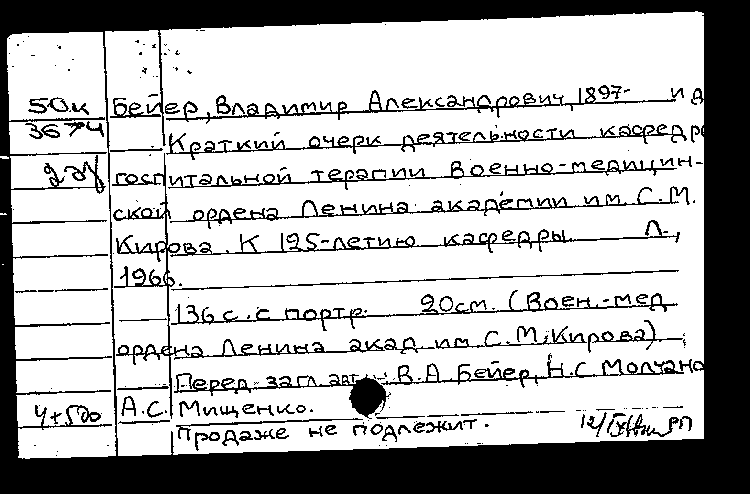 50к Бейер, Владимир Александрович, 1897- и д
3674 Краткий очерк деятельности кафедры
госпитальной терапии Военно-медицин-
ской ордена Ленина академии им. С.М.
Кирова. К 125-летию кафедры. Л.,
1966.
136 с. с портр. 20см. (Воен.-мед
ордена Ленина акад им. С.М. Кирова)
Перед загл. авт.: В.А. Бейер, Н.С. Молчано
А.С. Мищенко.
Продаже не подлежит.